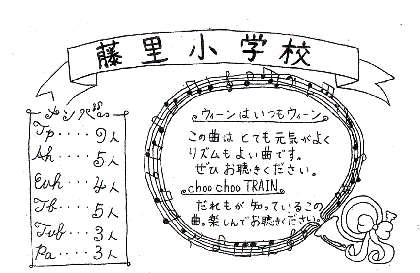 藤里小学校
メンバー
Tp····9人
Ah····5人
Euh····4人
Tb····5人
Tub····3人
Pa····3人
ウィーンはいつもウィーン
この曲は とても元気がよく
リズムもよい曲です。
ぜひ お聴きください。
choo choo TRAIN
だれもが 知っているこの
曲。楽しんでお聴きください。